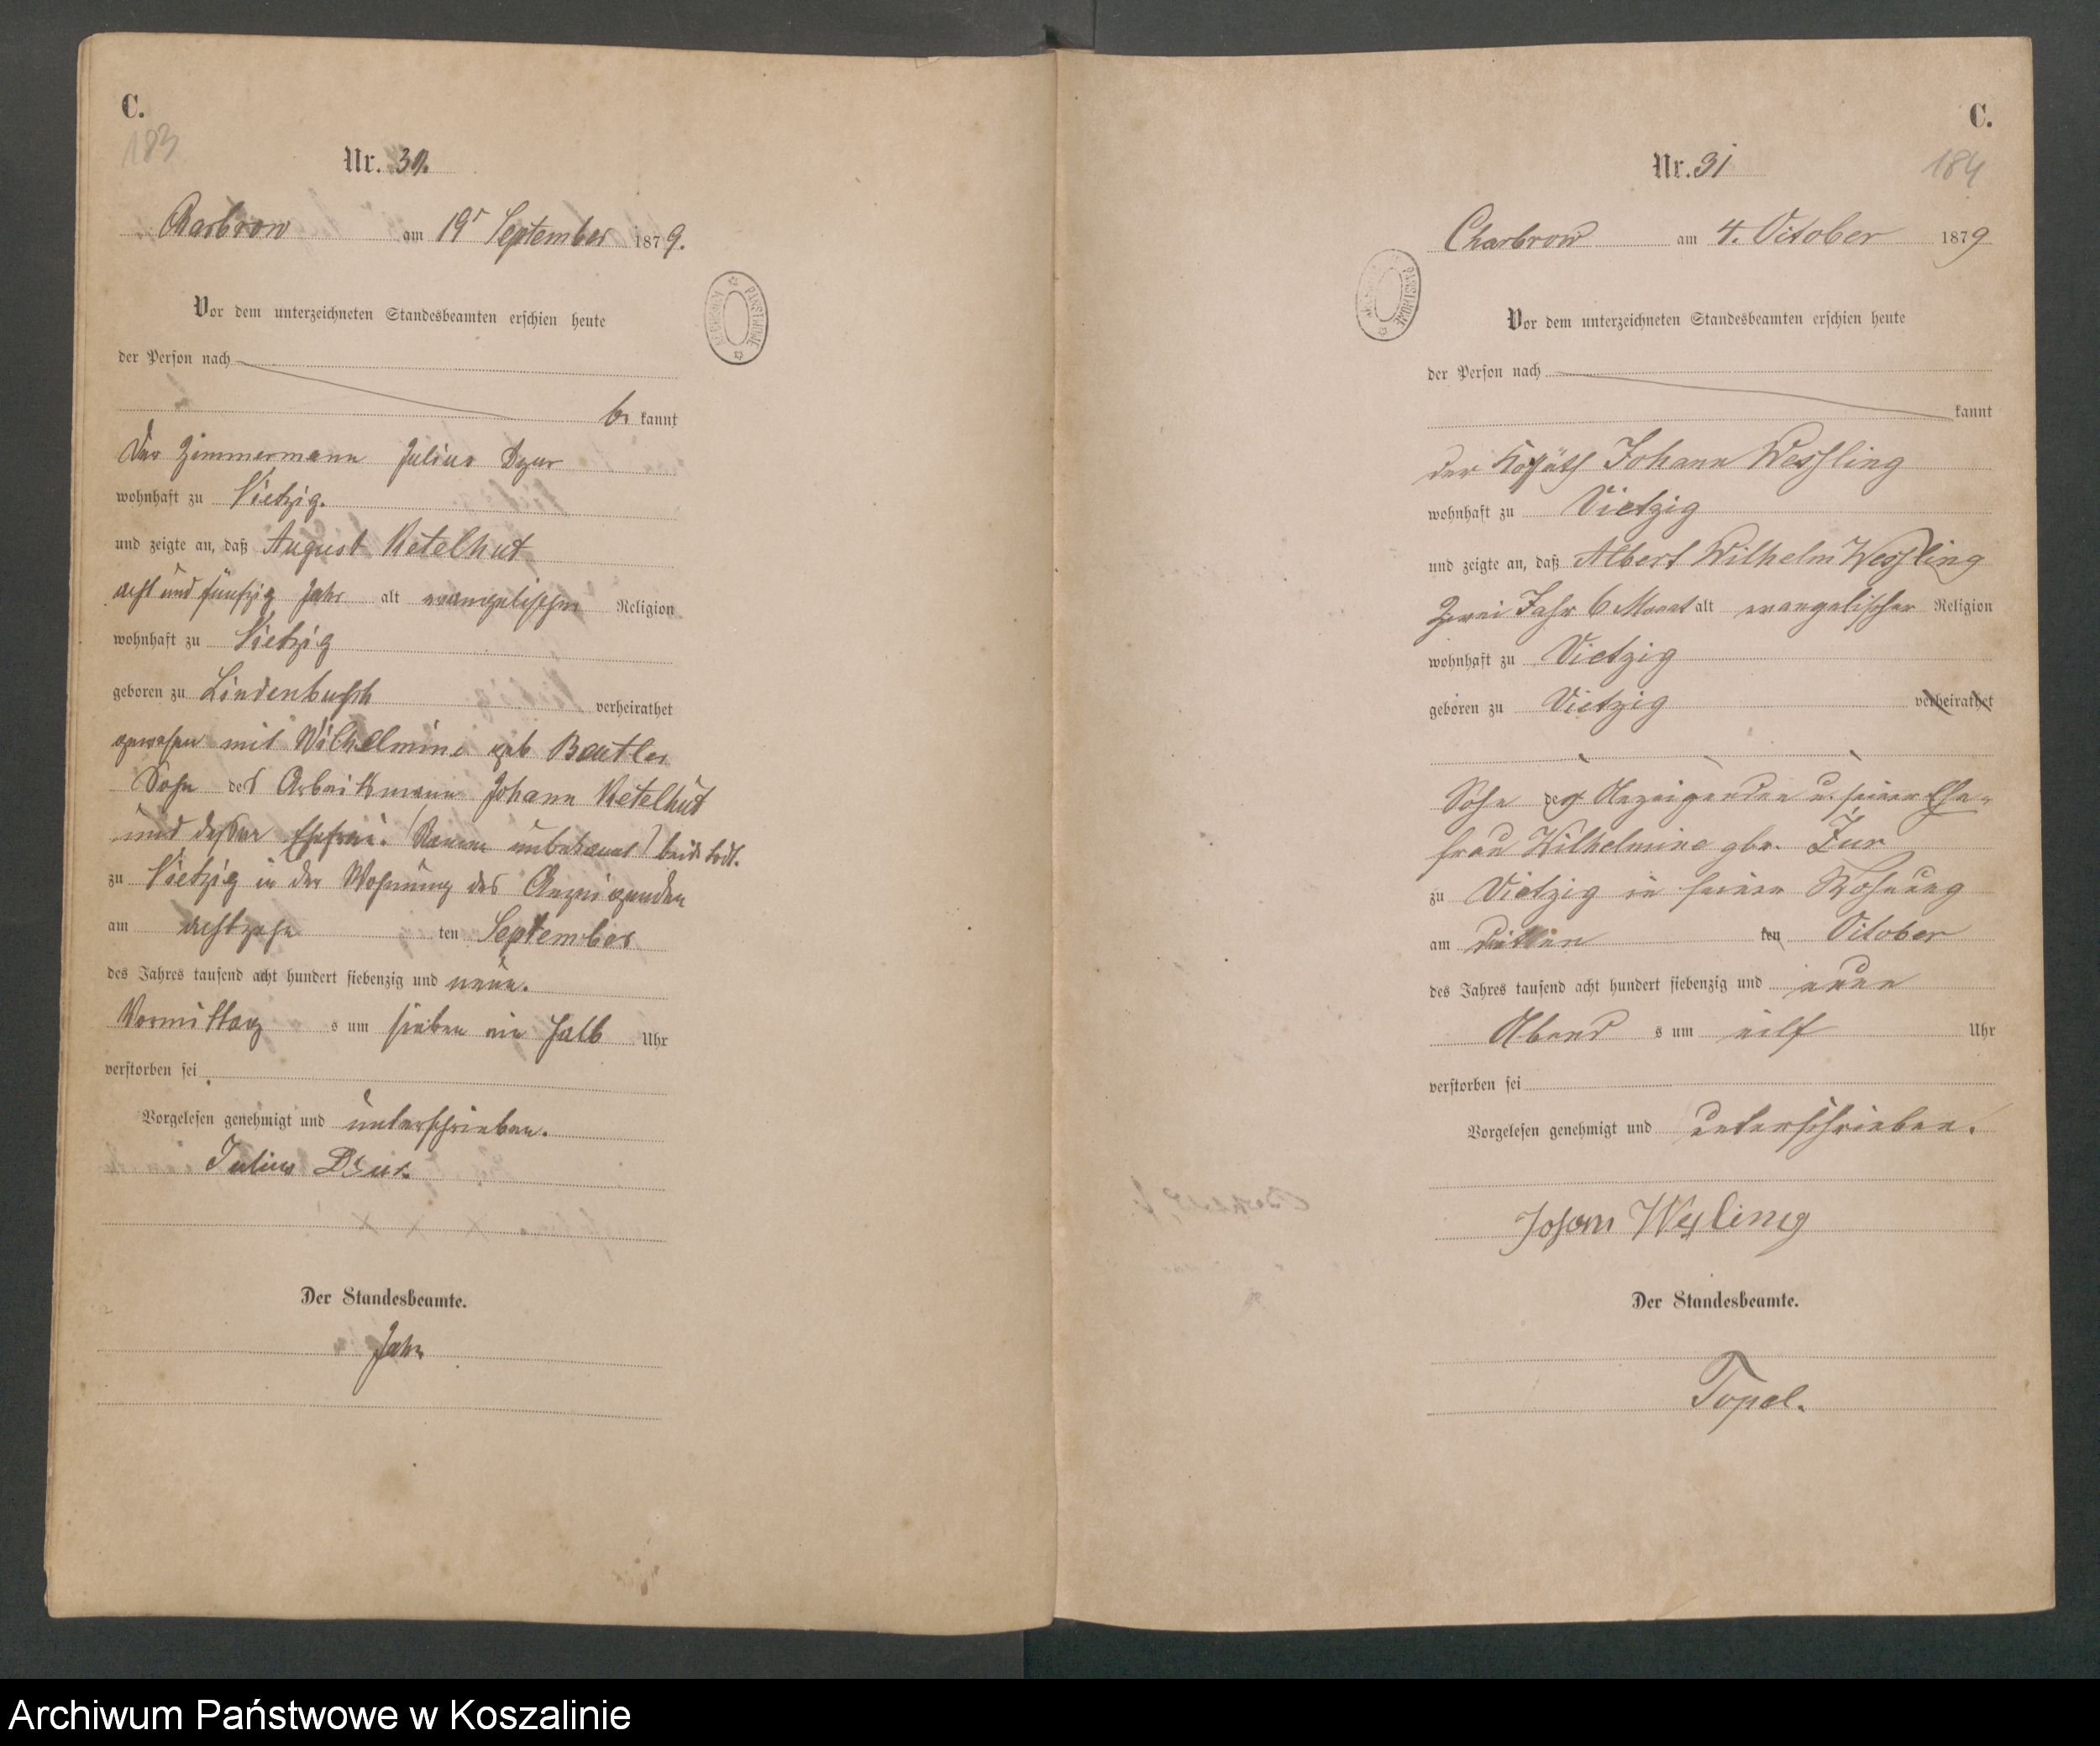 C.
183
Nr. 30.
Charbrow am 19t September 1879.
Vor dem unterzeichneten Standesbeamten erschien heute
der Person nach
be kannt
Der Zimmermann Julius Dzur
wohnhaft zu Vietzig.
und zeigte an, daß August Ketelhut
acht und fünfzig Jahr alt evangelischer Religion
wohnhaft zu Vietzig
geboren zu Lindenbusch verheirathet
gewesen mit Wilhelmine geb Beutler
Sohn des Arbeitsmann Johann Ketelhut
und dessen Ehefrau. (Namen unbekannt) beide todt.
zu Vietzig in der Wohnung des Anzeigenden
am achtzehn ten September
des Jahres tausend acht hundert siebenzig und neun.
Vormittag s um sieben ein halb Uhr
verstorben sei
Vorgelesen genehmigt und unterschrieben.
Julius Dzur.
Der Standesbeamte.
Jahn
C.
184
Nr. 31
Charbrow am 4. October 1879
Vor dem unterzeichneten Standesbeamten erschien heute
der Person nach
kannt
der Kossäth Johann Wessling
wohnhaft zu Vietzig
und zeigte an, daß Albert Wilhelm Wessling
Zwei Jahr 6 Monat alt evangelischer Religion
wohnhaft zu Vietzig
geboren zu Vietzig verheirathet
Sohn des Anzeigenden u. seiner Ehe-
frau Wilhelmine gbr. Zur
zu Vietzig in seiner Wohnung
am dritten ten October
des Jahres tausend acht hundert siebenzig und neun
Abend s um eilf Uhr
verstorben sei
Vorgelesen genehmigt und unterschrieben.
Johann Wesling
Der Standesbeamte.
Topel.
Archiwum Państwowe w Koszalinie